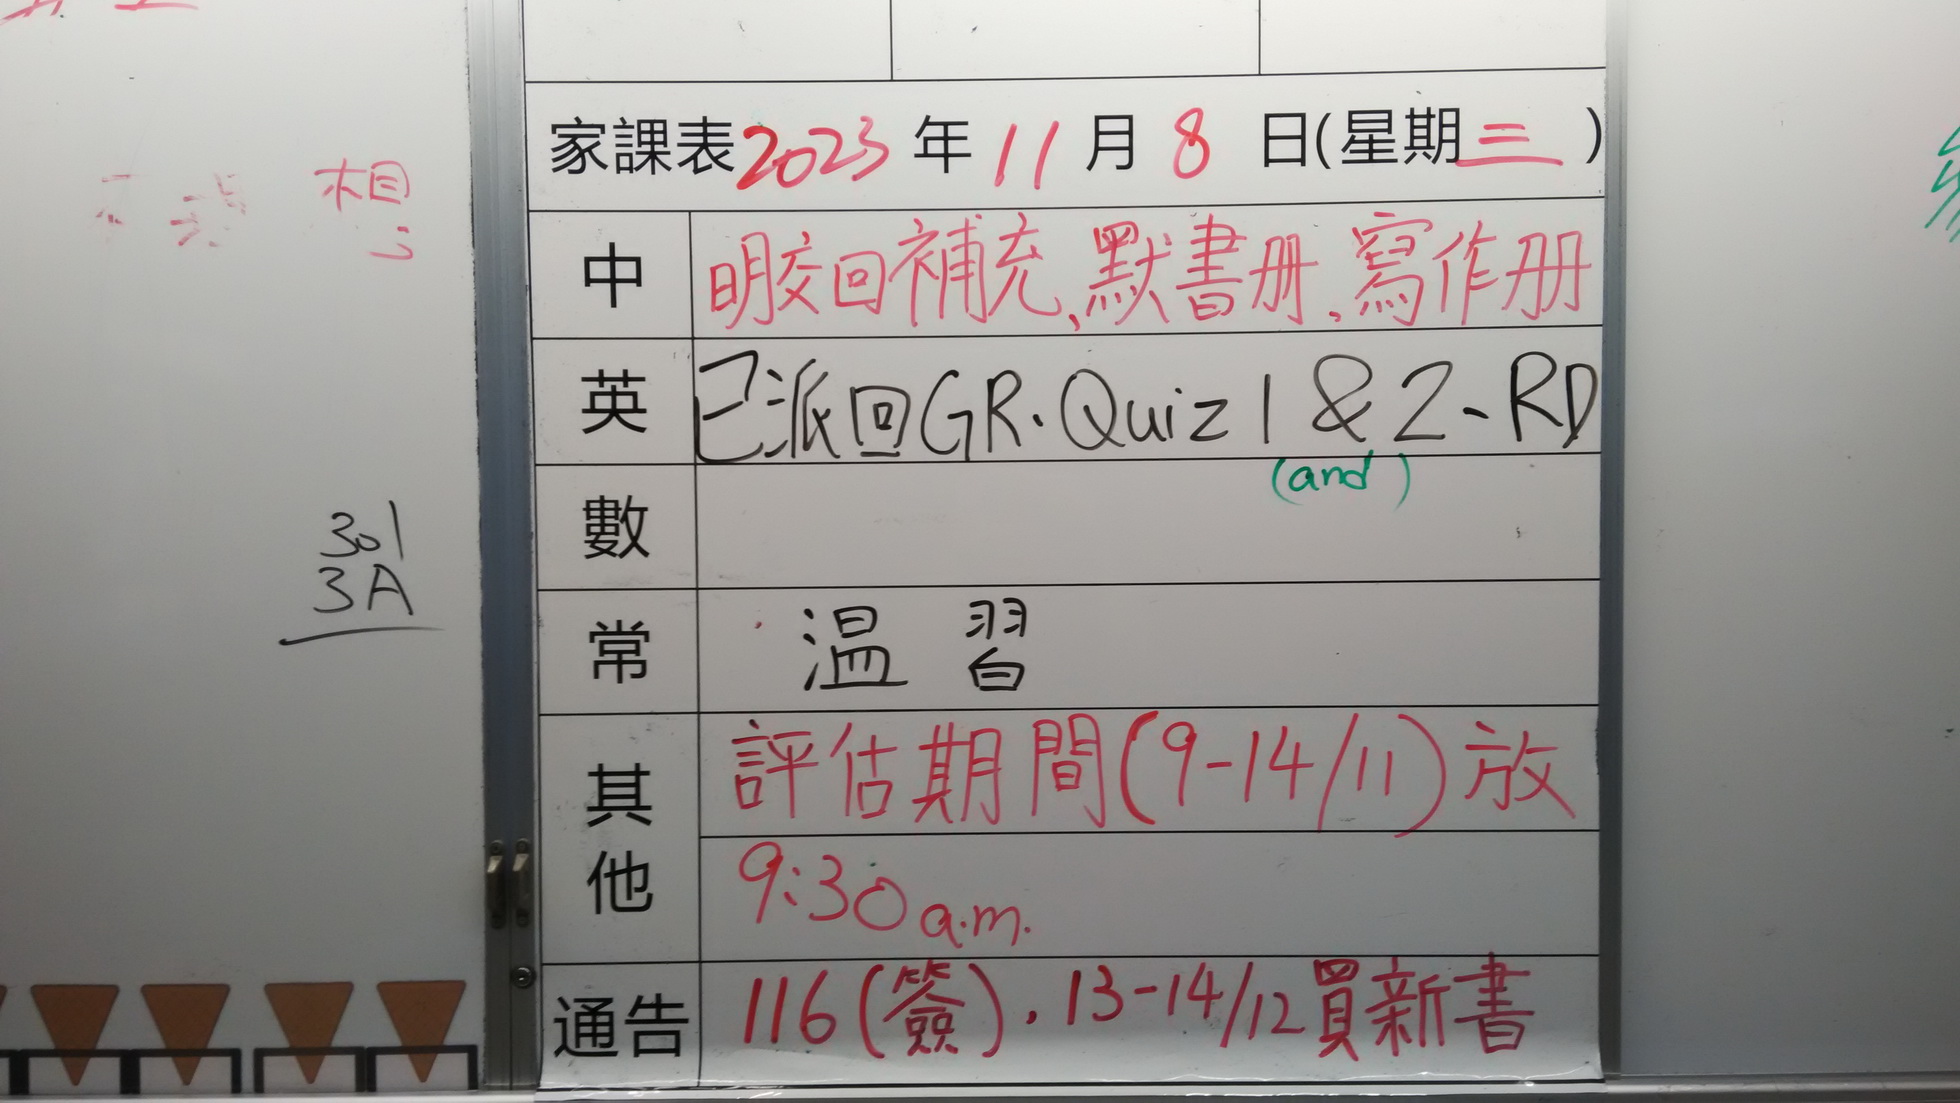 家課表2023年11月8日(星期三)
中 明交回補充、默書册、寫作册
英 已派回GR.Quiz 1 & 2、RD
(and)
數
常 温習
其他 評估期間(9-14/11)放
9:30 a.m.
通告 116(簽)、13-14/12買新書
想
301
3A